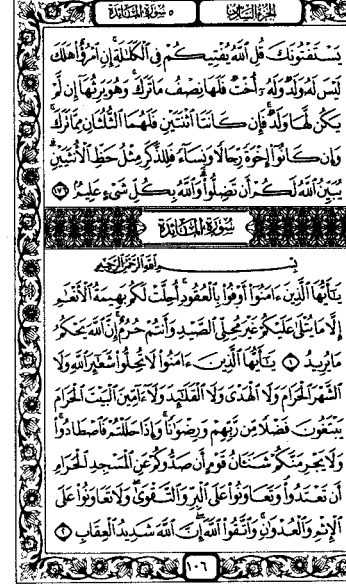 الجزء السادس
٥ سورة المائدة
يَسْتَفْتُونَكَ قُلِ ٱللَّهُ يُفْتِيكُمْ فِي ٱلْكَلَٰلَةِ إِنِ ٱمْرُؤٌا۟ هَلَكَ
لَيْسَ لَهُۥ وَلَدٌ وَلَهُۥٓ أُخْتٌ فَلَهَا نِصْفُ مَا تَرَكَ وَهُوَ يَرِثُهَآ إِن لَّمْ
يَكُن لَّهَا وَلَدٌ فَإِن كَانَتَا ٱثْنَتَيْنِ فَلَهُمَا ٱلثُّلُثَانِ مِمَّا تَرَكَ
وَإِن كَانُوٓا۟ إِخْوَةً رِّجَالًا وَنِسَآءً فَلِلذَّكَرِ مِثْلُ حَظِّ ٱلْأُنثَيَيْنِ
يُبَيِّنُ ٱللَّهُ لَكُمْ أَن تَضِلُّوا۟ وَٱللَّهُ بِكُلِّ شَىْءٍ عَلِيمٌ ١٧٦
سورة المائدة
بِسْمِ ٱللَّهِ ٱلرَّحْمَٰنِ ٱلرَّحِيمِ
يَٰٓأَيُّهَا ٱلَّذِينَ ءَامَنُوٓا۟ أَوْفُوا۟ بِٱلْعُقُودِ أُحِلَّتْ لَكُم بَهِيمَةُ ٱلْأَنْعَٰمِ
إِلَّا مَا يُتْلَىٰ عَلَيْكُمْ غَيْرَ مُحِلِّى ٱلصَّيْدِ وَأَنتُمْ حُرُمٌ إِنَّ ٱللَّهَ يَحْكُمُ
مَا يُرِيدُ ١ يَٰٓأَيُّهَا ٱلَّذِينَ ءَامَنُوا۟ لَا تُحِلُّوا۟ شَعَٰٓئِرَ ٱللَّهِ وَلَا
ٱلشَّهْرَ ٱلْحَرَامَ وَلَا ٱلْهَدْىَ وَلَا ٱلْقَلَٰٓئِدَ وَلَآ ءَآمِّينَ ٱلْبَيْتَ ٱلْحَرَامَ
يَبْتَغُونَ فَضْلًا مِّن رَّبِّهِمْ وَرِضْوَٰنًا وَإِذَا حَلَلْتُمْ فَٱصْطَادُوا۟
وَلَا يَجْرِمَنَّكُمْ شَنَـَٔانُ قَوْمٍ أَن صَدُّوكُمْ عَنِ ٱلْمَسْجِدِ ٱلْحَرَامِ
أَن تَعْتَدُوا۟ وَتَعَاوَنُوا۟ عَلَى ٱلْبِرِّ وَٱلتَّقْوَىٰ وَلَا تَعَاوَنُوا۟ عَلَى
ٱلْإِثْمِ وَٱلْعُدْوَٰنِ وَٱتَّقُوا۟ ٱللَّهَ إِنَّ ٱللَّهَ شَدِيدُ ٱلْعِقَابِ ٢
١٠٦